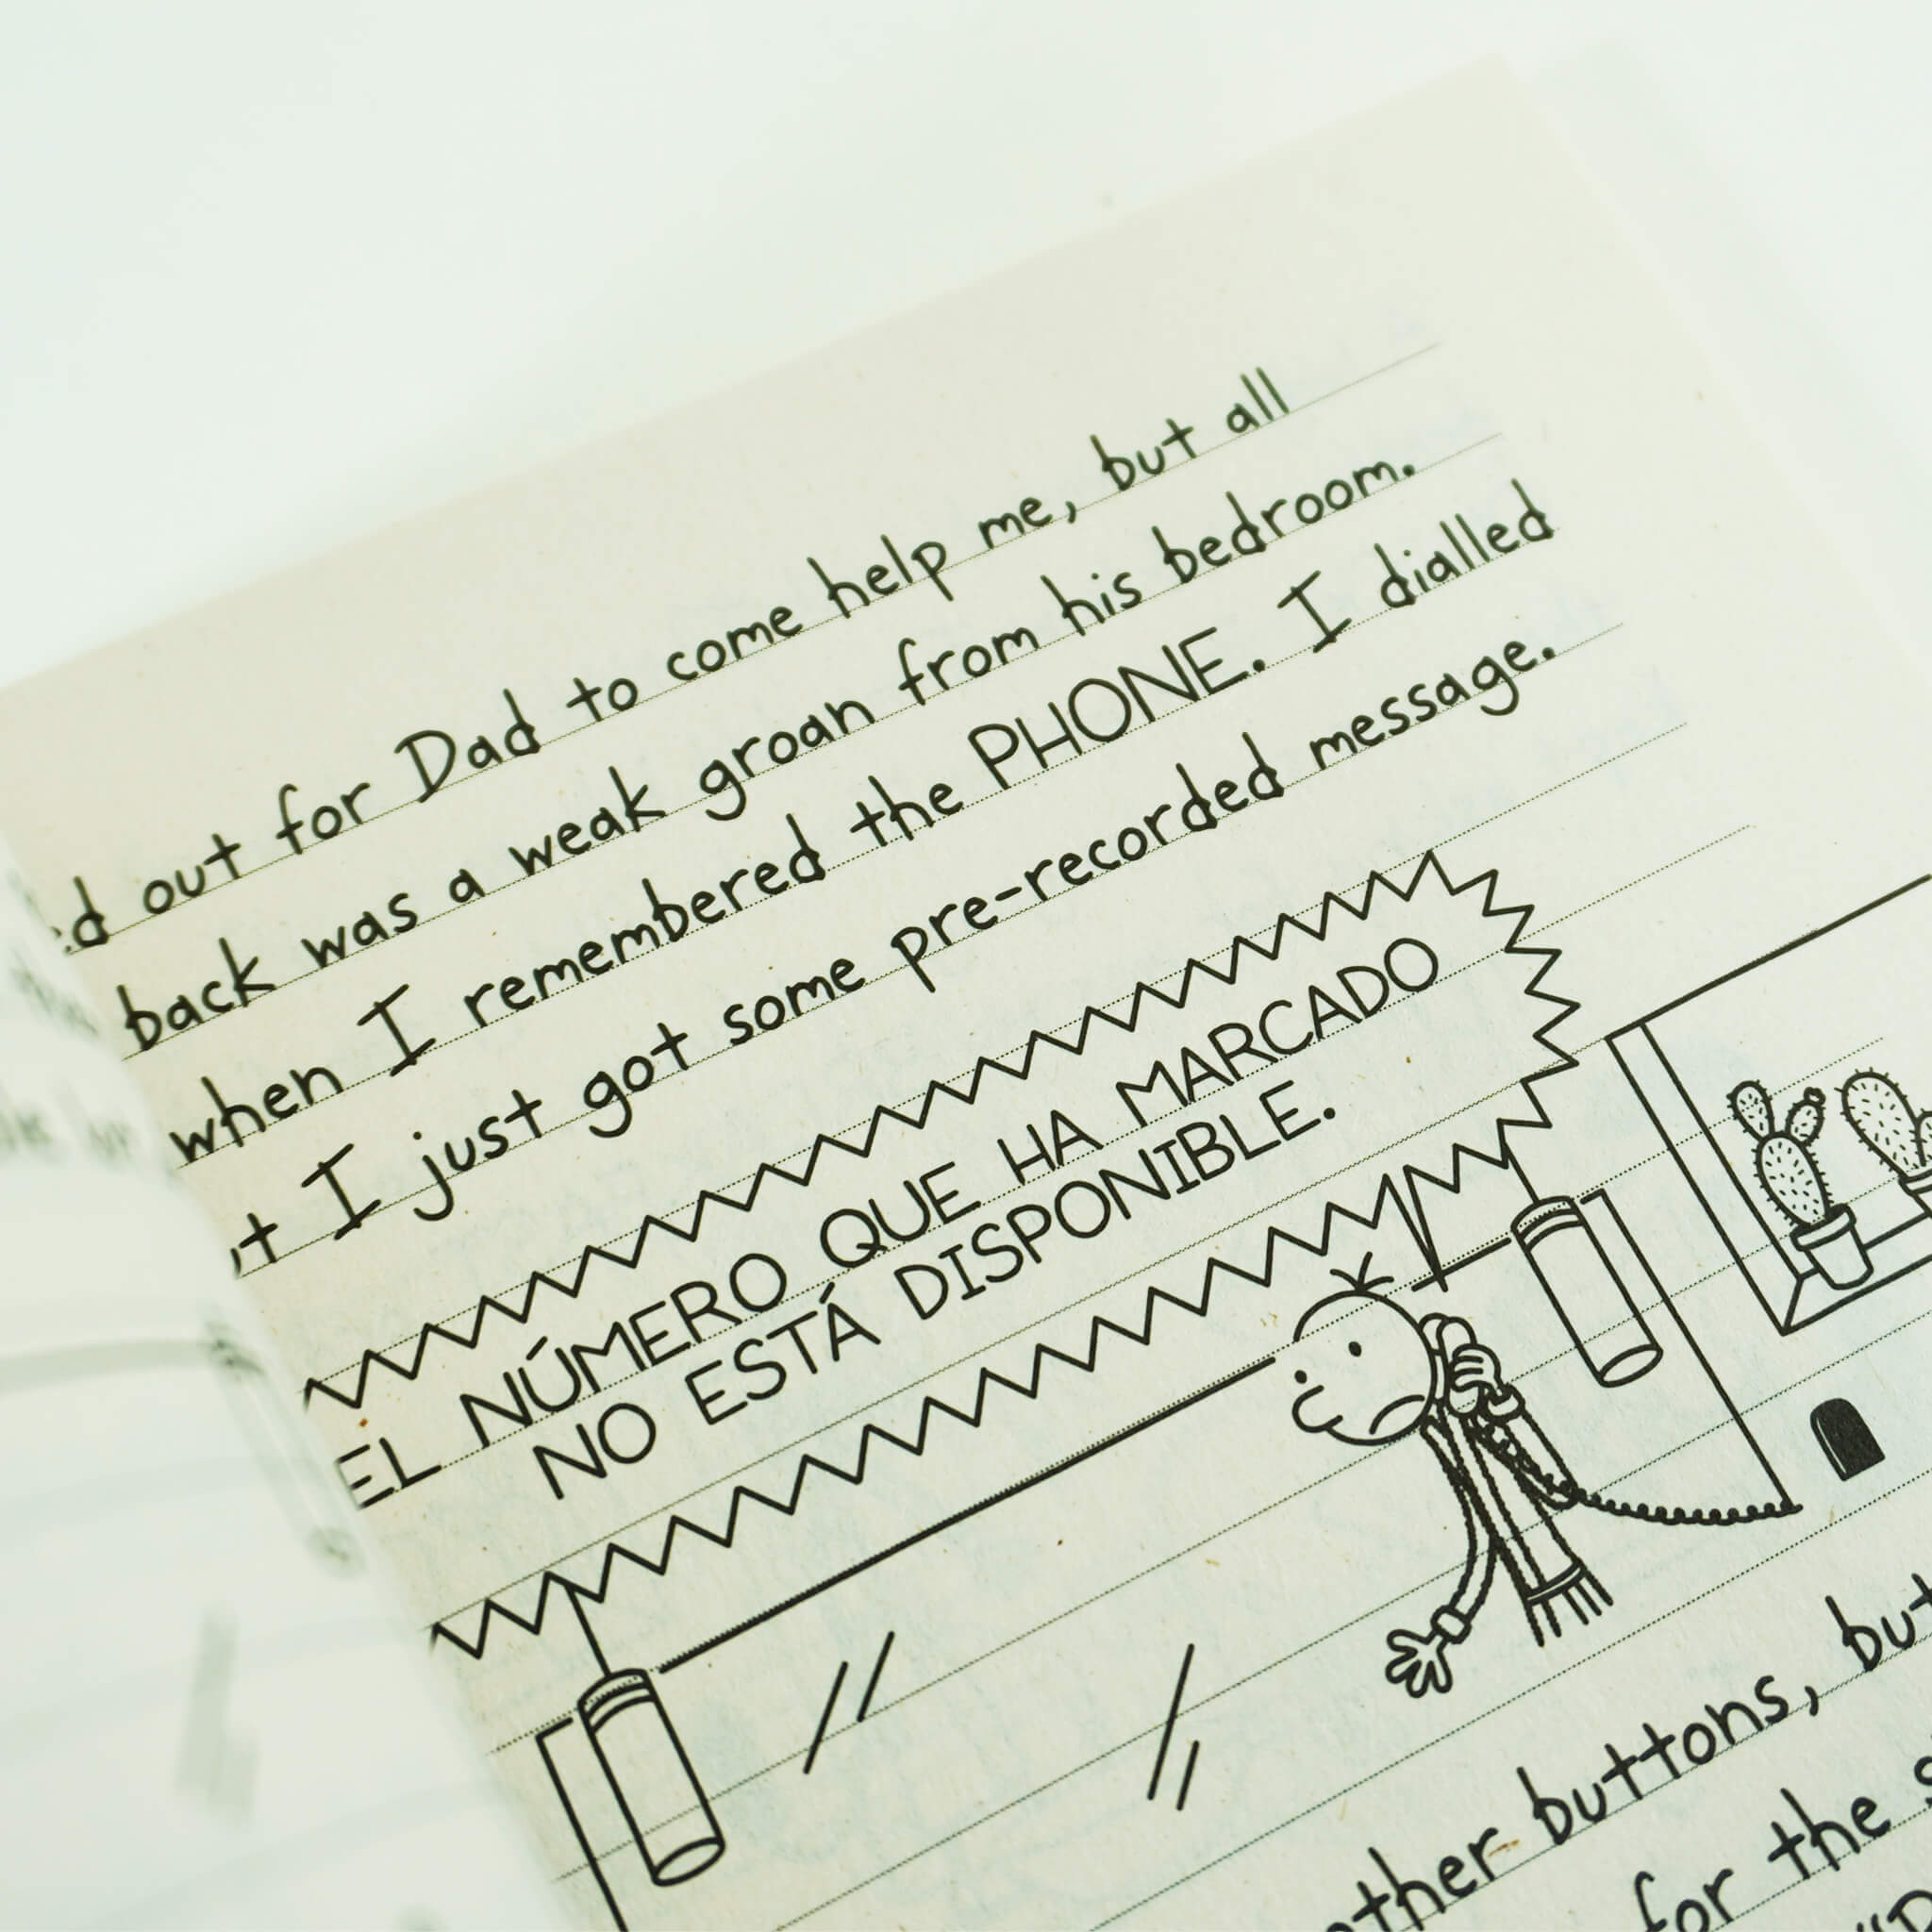 out for Dad to come help me, but all
back was a weak groan from his bedroom.
when I remembered the PHONE. I dialled
I just got some pre-recorded message.
EL NÚMERO QUE HA MARCADO
NO ESTÁ DISPONIBLE.
other buttons, but
for the